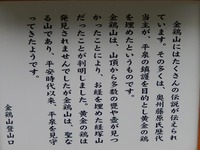 金鶏山にはたくさんの伝説が伝えられ
ています。その多くは、奥州藤原氏歴代
当主が、平泉の鎮護を目的と黄金の鶏
を埋めたというものです。
金鶏山は、山頂から多数の甕や壺が見つ
かったことにより、お経を埋めた経塚山
だったことが判明しました。黄金の鶏は
発見されませんでしたが金鶏山は、聖な
る山であり、平安時代以来、平泉を見守
ってきたようです。
金鶏山登山口